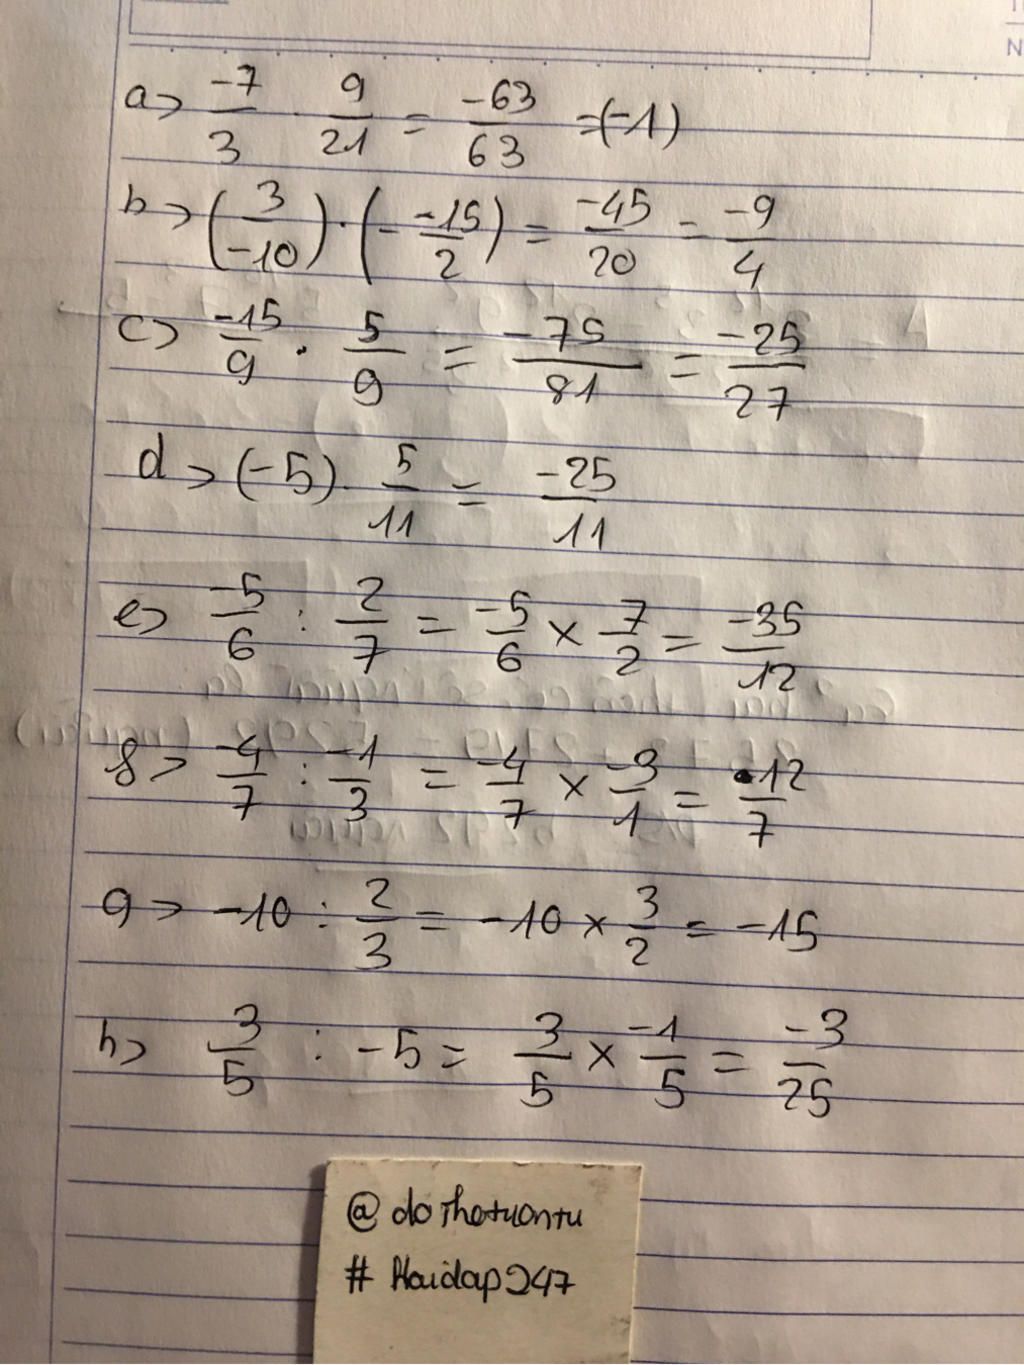 a> -7/3 . 9/21 = -63/63 = (-1)
b> (3/-10) . (- -15/2) = -45/20 = -9/4
c> -15/9 . 5/9 = -75/81 = -25/27
d> (-5) . 5/11 = -25/11
e> -5/6 : 2/7 = -5/6 × 7/2 = -35/12
f> -4/7 : -1/3 = -4/7 × -3/1 = 12/7
g> -10 : 2/3 = -10 × 3/2 = -15
h> 3/5 : -5 = 3/5 × -1/5 = -3/25
@doThetuontu
#Haidap247